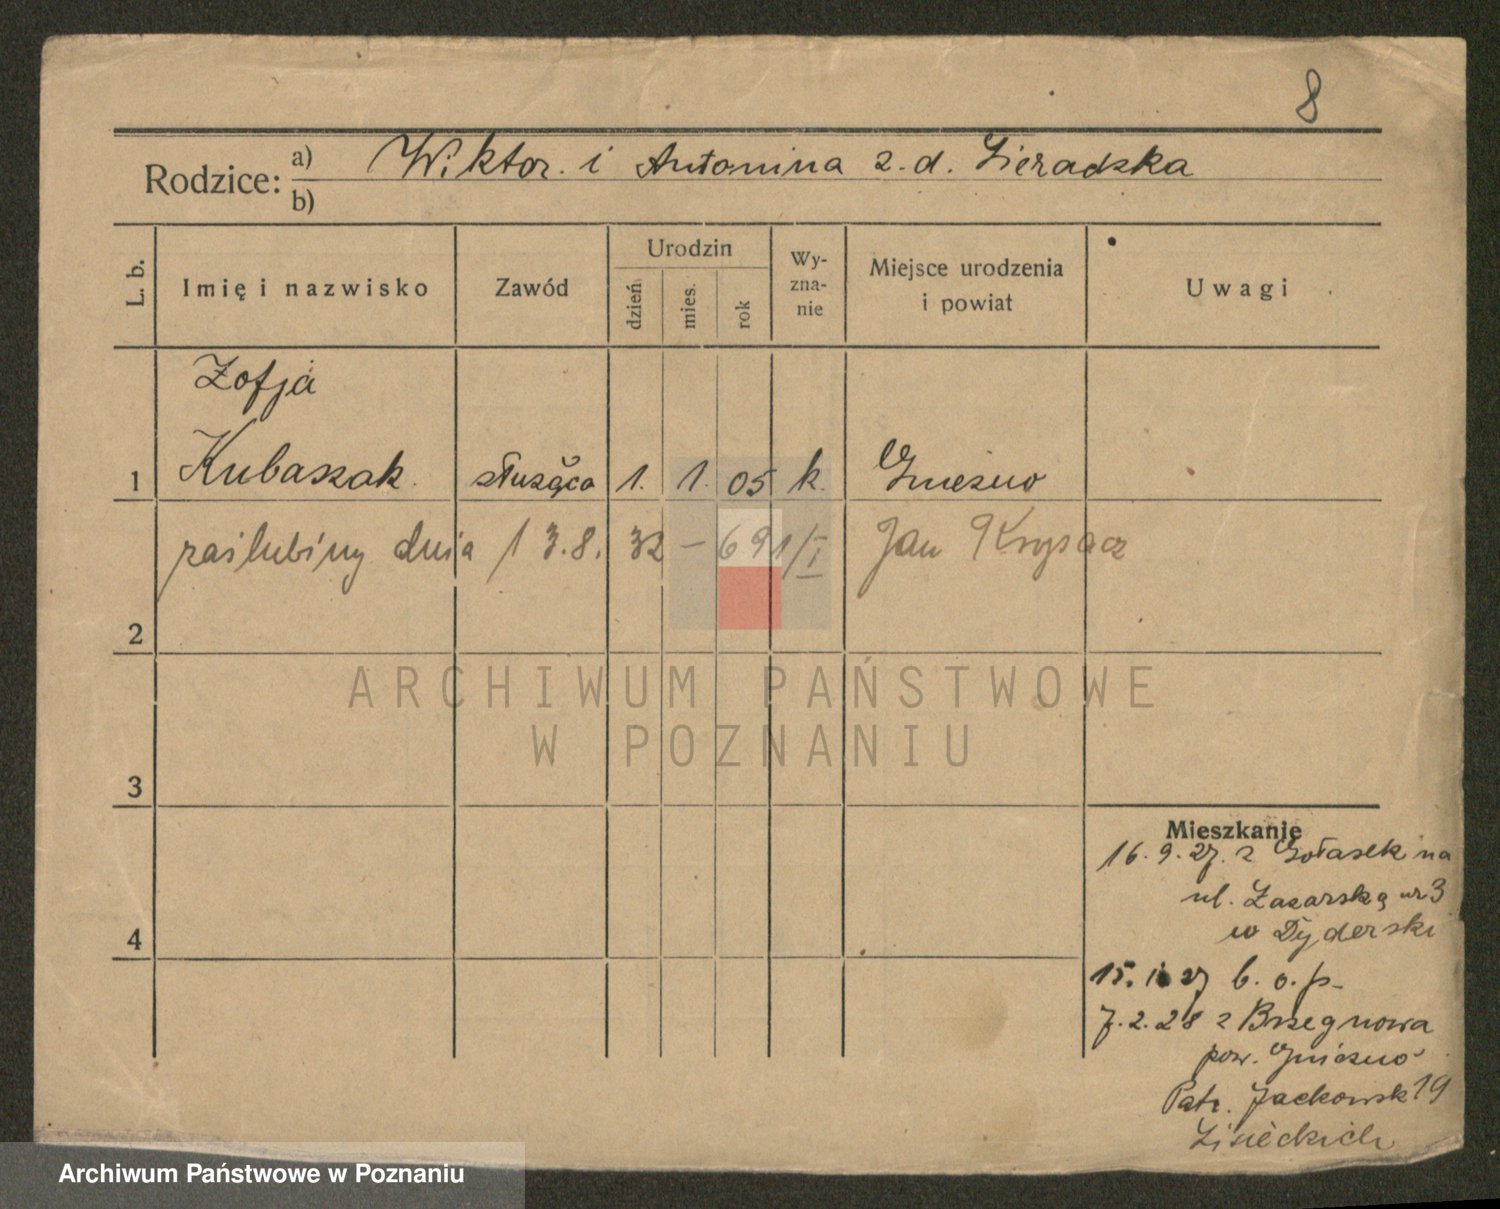 8
Rodzice: a) Wiktor. i Antonina z. d. Sieradzka
b)
L. b.
Imię i nazwisko
Zawód
Urodzin
dzień
mies.
rok
Wy-
zna-
nie
Miejsce urodzenia
i powiat
Uwagi
Zofja
1 Kubaszak. służąca 1. 1. 05 k. Gniezno
zaślubiny dnia 13.8. 32 – 691/I Jan
2
3
4
ARCHIWUM PAŃSTWOWE
W POZNANIU
Mieszkanie
16. 9. 27. z na
ul. Łazarską nr 3
w Dyderski
15. 27 b. o. p.
7. 2. 28 z
pow. Gniezno
Patr. Jackowsk 19
Lisieckich
Archiwum Państwowe w Poznaniu